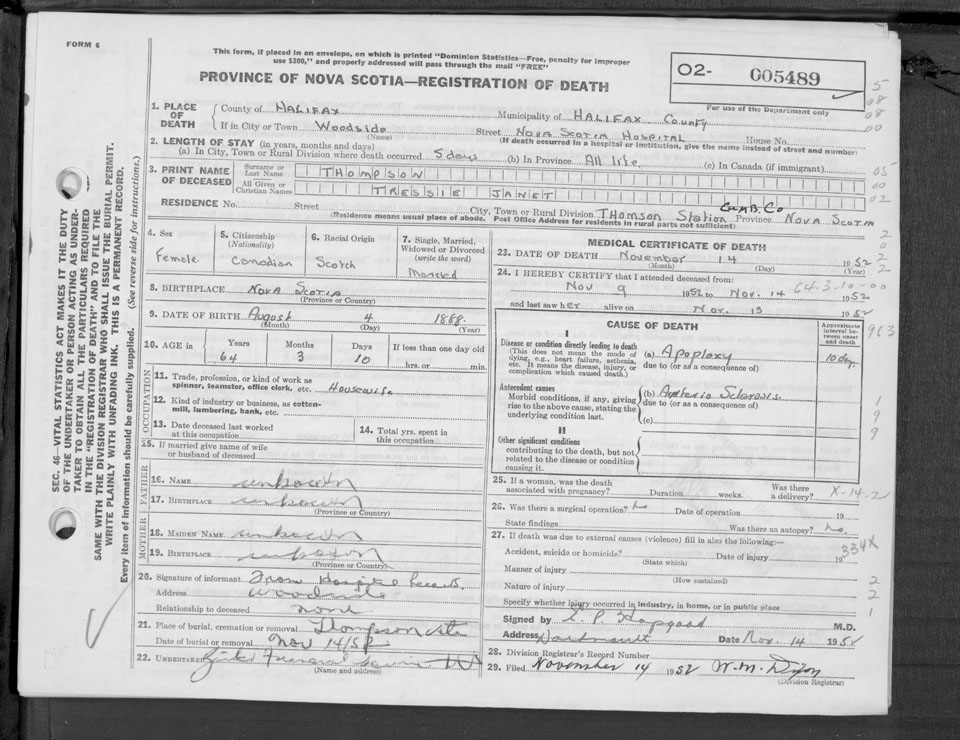 FORM 6
This form, if placed in an envelope, on which is printed "Dominion Statistics—Free, penalty for improper
use $300," and properly addressed will pass through the mail "FREE"
PROVINCE OF NOVA SCOTIA—REGISTRATION OF DEATH
O2- 005489
For use of the Department only
1. PLACE OF DEATH County of HALIFAX Municipality of HALIFAX County
If in City or Town Woodside Street NOVA SCOTIA HOSPITAL House No.
(Name) (If death occurred in a hospital or institution, give the name instead of street and number)
2. LENGTH OF STAY (in years, months and days)
(a) In City, Town or Rural Division where death occurred 5 days (b) In Province All life (c) In Canada (if immigrant)
3. PRINT NAME OF DECEASED
Surname or Last Name THOMPSON
All Given or Christian Names TRESSIE JANET
RESIDENCE No. Street City, Town or Rural Division THOMSON Station CUMB. Co Province NOVA SCOTIA
(Residence means usual place of abode. Post Office Address for residents in rural parts not sufficient)
4. Sex Female
5. Citizenship (Nationality) Canadian
6. Racial Origin Scotch
7. Single, Married, Widowed or Divorced (write the word) Married
8. BIRTHPLACE NOVA SCOTIA
(Province or Country)
9. DATE OF BIRTH August 4 1888.
(Month) (Day) (Year)
10. AGE in Years Months Days If less than one day old
64 3 10 hrs. or min.
OCCUPATION
11. Trade, profession, or kind of work as spinner, teamster, office clerk, etc. Housewife
12. Kind of industry or business, as cotten-mill, lumbering, bank, etc.
13. Date deceased last worked at this occupation
14. Total yrs. spent in this occupation
15. If married give name of wife or husband of deceased
FATHER
16. NAME unknown
17. BIRTHPLACE unknown
(Province or Country)
MOTHER
18. MAIDEN NAME unknown
19. BIRTHPLACE unknown
(Province or Country)
20. Signature of informant From Hospital Records
Address Woodside
Relationship to deceased none
21. Place of burial, cremation or removal Thompson Stn
Date of burial or removal Nov 14/52
22. Undertaker Funeral Service
(Name and address)
MEDICAL CERTIFICATE OF DEATH
23. DATE OF DEATH November 14 1952
(Month) (Day) (Year)
24. I HEREBY CERTIFY that I attended deceased from:
Nov 9 1952 to Nov. 14 1952
64-3-10-00
and last saw her alive on Nov. 13 1952
CAUSE OF DEATH
Approximate interval between onset and death
I
Disease or condition directly leading to death
(This does not mean the mode of dying, e.g., heart failure, asthenia, etc. It means the disease, injury, or complication which caused death.)
(a) Apoplexy 10 days
due to (or as a consequence of)
Antecedent causes
Morbid conditions, if any, giving rise to the above cause, stating the underlying condition last.
(b) Arterio Sclerosis
due to (or as a consequence of)
(c)
II
Other significant conditions
contributing to the death, but not related to the disease or condition causing it.
25. If a woman, was the death associated with pregnancy? Duration weeks. Was there a delivery?
X-14-2
26. Was there a surgical operation? No Date of operation 19
State findings Was there an autopsy? No.
27. If death was due to external causes (violence) fill in also the following:—
Accident, suicide or homicide? Date of injury 19
(State which)
334X
Manner of injury
(How sustained)
Nature of injury
Specify whether injury occurred in industry, in home, or in public place
Signed by E. P. Hapgood M.D.
Address Dartmouth Date Nov. 14 1952
28. Division Registrar's Record Number
29. Filed November 14 1952 W. M. Dixon
(Division Registrar)
SEC. 46—VITAL STATISTICS ACT MAKES IT THE DUTY
OF THE UNDERTAKER OR PERSON ACTING AS UNDER-
TAKER TO OBTAIN ALL THE PARTICULARS REQUIRED
IN THE "REGISTRATION OF DEATH" AND TO FILE THE
SAME WITH THE DIVISION REGISTRAR WHO SHALL ISSUE THE BURIAL PERMIT.
WRITE PLAINLY WITH UNFADING INK. THIS IS A PERMANENT RECORD.
Every item of information should be carefully supplied. (See reverse side for instructions.)